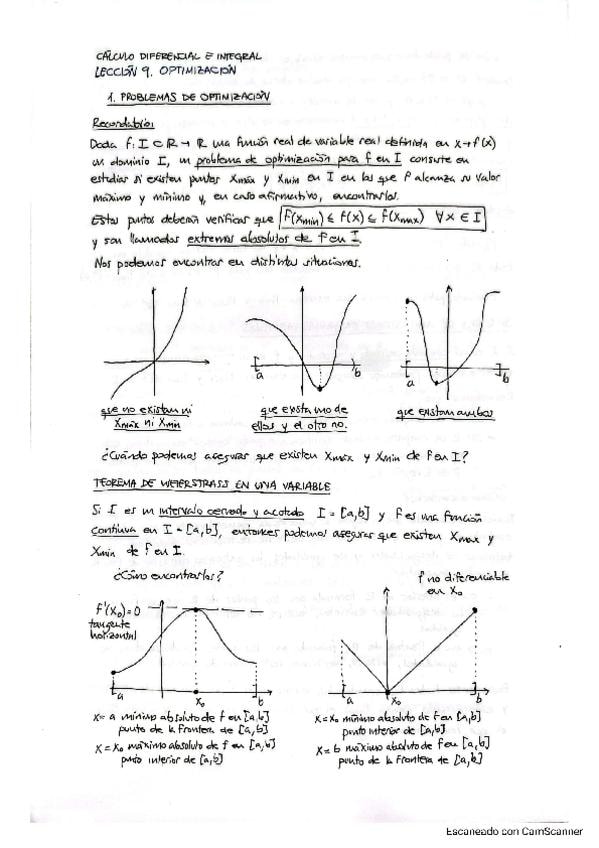 CÁLCULO DIFERENCIAL E INTEGRAL
LECCIÓN 9. OPTIMIZACIÓN
1. PROBLEMAS DE OPTIMIZACIÓN
Recordatorio:
Dada f: I ⊂ ℝ → ℝ una función real de variable real definida en x→f(x)
un dominio I, un problema de optimización para f en I consiste en
estudiar si existen puntos xmáx y xmin en I en los que f alcanza su valor
máximo y mínimo y, en caso afirmativo, encontrarlos.
Estos puntos deberán verificar que f(xmin) ≤ f(x) ≤ f(xmax) ∀x ∈ I
y son llamados extremos absolutos de f en I.
Nos podemos encontrar en distintas situaciones.
a b
a b
que no existan ni xmáx ni xmin
que exista uno de ellos y el otro no.
que existan ambos
¿Cuándo podemos asegurar que existen xmáx y xmin de f en I?
TEOREMA DE WEIERSTRASS EN UNA VARIABLE
Si I es un intervalo cerrado y acotado I = [a,b] y f es una función
continua en I = [a,b], entonces podemos asegurar que existen xmax y
xmin de f en I.
¿Cómo encontrarlos?
f'(x₀)=0
tangente
horizontal
a x₀ b
x = a mínimo absoluto de f en [a,b]
punto de la frontera de [a,b]
x = x₀ máximo absoluto de f en [a,b]
punto interior de [a,b]
f no diferenciable
en x₀
a x₀ b
x = x₀ mínimo absoluto de f en [a,b]
punto interior de [a,b]
x = b máximo absoluto de f en [a,b]
punto de la frontera de [a,b]
Escaneado con CamScanner